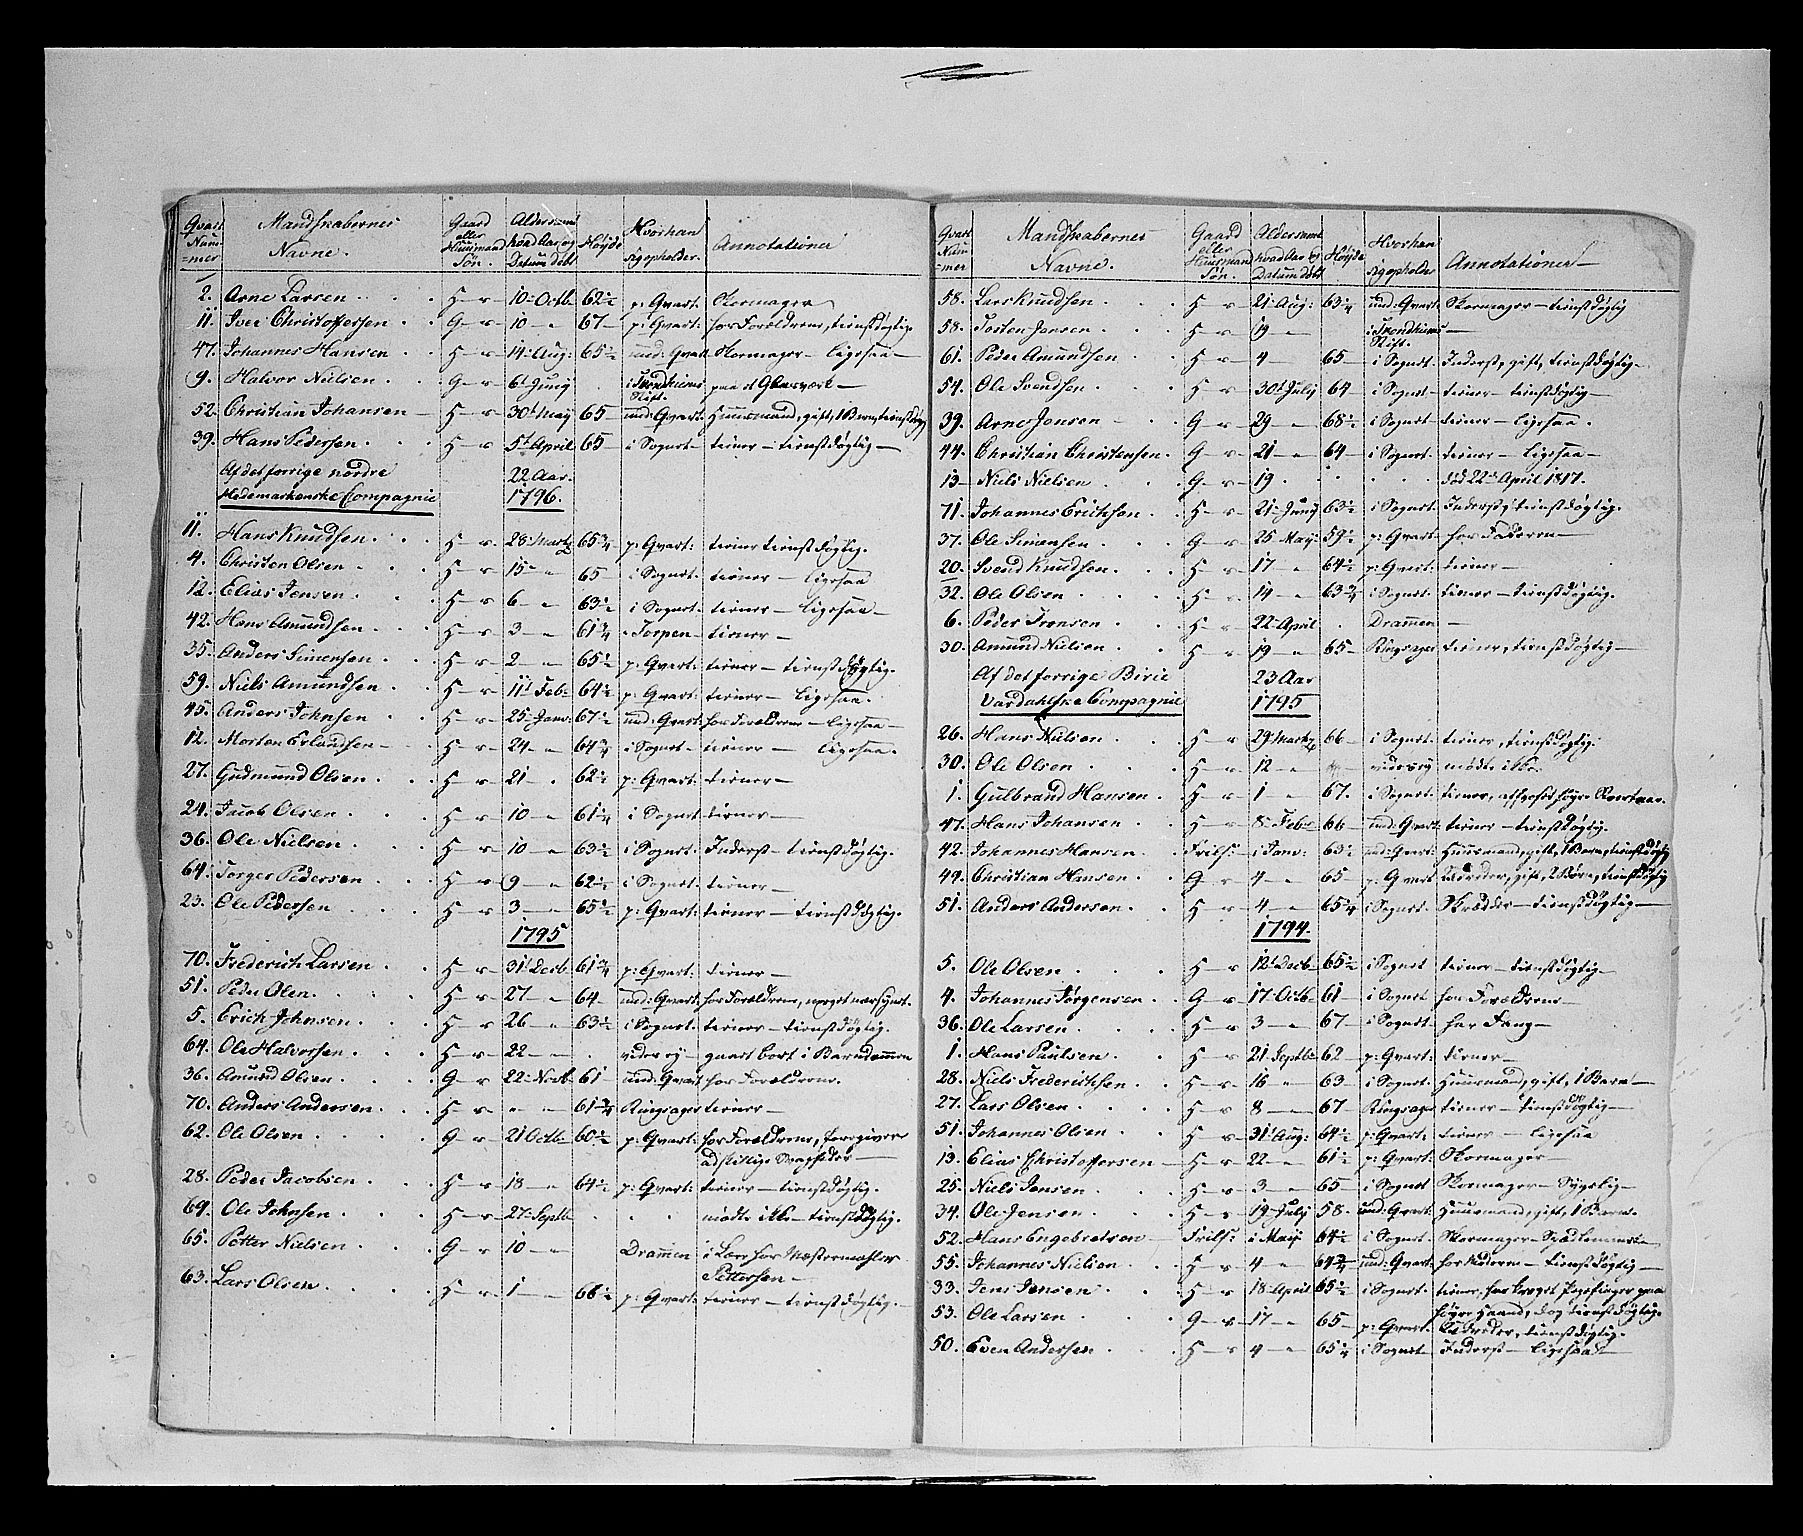 Qvart Num=mer Mandskabernes Navne. Gaard eller Huusmand Søn. Alders samt hvad Aar og Datum Døbt Høyde Hvor han sig opholder. Annotationer
2. Arne Larsen H 10 Octb 62½ p: Qvart: Skomager
11. Iver Christoffersen G 10 67 p: Qvart: hos Forældrene, tienstdøgtig
47. Johannes Hansen H 14 Aug: 65½ und: Qvart Skomager ligesaa
9. Halvor Nielsen G 6t Juny i Trondhiems Stift. paa et Glasværk
52. Christian Johansen H 30t May 65 und: Qvart: Huusmand, gift, 1 Barn, tienstdøgtig
39. Hans Pedersen H 5t April 65 i Sognet tiener tienstdøgtig
Af det forrige nordre 22 Aar.
Hedemarkenske Compagnie 1796.
11. Hans Knudsen H 28 Martz 65¾ p: Qvart: tiener tienstdøgtig.
4. Christen Olsen H 15 65 i Sognet: tiener ligesaa
12. Elias Jensen H 6 63½ i Sognet: tiener ligesaa
42. Hans Amundsen H 3 61¾ Torpen tiener
35. Anders Simensen H 2 65½ p: Qvart: tiener tienstdøgtig.
59. Niels Amundsen H 11t Feb: 64½ p: Qvart: tiener ligesaa
45. Anders Johnsen H 25 Janv: 67½ und: Qvart: hos Forældrene ligesaa
12. Morten Erlandsen H 24 64¾ i Sognet tiener ligesaa.
27. Gudmund Olsen H 21 62½ p: Qvart: tiener
24. Jacob Olsen H 10 61¼ i Sognet tiener
36. Ole Nielsen H 10 63½ i Sognet: Inderst tienstdøgtig.
64. Torger Pedersen H 9 62½ i Sognet: tiener
23. Ole Pedersen H 3 65½ p: Qvart: tiener tienstdøgtig.
1795
70. Frederich Larsen H 31t Decb 61¾ p: Qvart: tiener
51. Peder Olen H 27 64 und: Qvart: hos Forældrene, meget nærsynt.
5. Erich Johnsen H 26 63½ i Sognet: tiener tienstdøgtig.
64. Ole Halvorsen H 22 gaaet bort i Barndommen
36. Amund Olsen G 22 Novb 61 und: Qvart hos Forældrene.
70. Anders Andersen H 61¾ Ringsager tiener
62. Ole Olsen G 21 Octb 60½ p: Qvart: hos Forældrene, foregiver
adskillige Svagheder
28. Peder Jacobsen H 18 64½ p: Qvart: tiener tienstdøgtig.
69. Ole Johnsen H 27 Septb mødte ikke tienstdøgtig.
65. Petter Nielsen G 10 Drammen i Lære hos Mæstermahler
Pettersen
63. Lars Olsen H 1 66½ p: Qvart: tiener tienstdøgtig.
Qvart Num=mer Mandskabernes Navne. Gaard eller Huusmand Søn. Alders samt hvad Aar og Datum Døbt Høyde Hvor han sig opholder Annotationer
58. Lars Knudsen H 21 Aug: 63¼ und: Qvart: Skomager tienstdøgtig
58. Torsten Jonsen H 19 i Trondhiems Stift.
61. Peder Amundsen H 4 65 i Sognet: Inderst, gift, tienstdøgtig
54. Ole Svendsen H 30t July 64 i Sognet tiener tienstdøgtig
39. Arne Jonsen G 29 68½ i Sognet tiener ligesaa.
44. Christian Christensen G 21 64 i Sognet: tiener ligesaa
13. Niels Nielsen G 19. død 22de April 1817.
71. Johannes Erichsen H 21 Juny 63½ i Sognet: Inderst, tienstdøgtig.
37. Ole Simensen G 25 May 59½ p: Qvart hos Faderen
20. Svend Knudsen H 17 64½ p: Qvart: tiener
32. Ole Olsen H 14 63¾ i Sognet: tiener tienstdøgtig.
6. Peder Ivensen H 22 April Drammen
30. Amund Nielsen H 19 65 Ringsager tiener, tienstdøgtig
Af det forrige Birie 23 Aar
Vardahlske Compagnie 1795
26. Hans Nielsen H 29 Martz 66 i Sognet: tiener, tienstdøgtig.
30. Ole Olsen H 12 mødte ikke
1. Gulbrand Hansen H 1 67. i Sognet: tiener,
47. Hans Johansen H 8 Feb: 66 und: Qvart: tiener tienstdøgtig.
42. Johannes Hansen Frilf: 1 Janv: 63½ und: Qvart: Huusmand, gift, 1 Barn, tienstdøgtig
49. Christian Hansen G 4 65 p: Qvart gift, 2 Børn, tienstdøgtig
51. Anders Andersen H 4 65¼ i Sognet: Skrædder tienstdøgtig
1794.
5. Ole Olsen H 12t Decb 65½ i Sognet tiener tienstdøgtig
4. Johannes Jørgensen G 17 Octb 61 i Sognet hos Forældrene
36. Ole Larsen H 3 67 i Sognet: har Fang
1. Hans Paulsen H 21 Septb 62 p: Qvart: tiener
28. Niels Frederichsen H 16 63 i Sognet: Huusmand, gift, 1 Barn
27. Lars Olsen H 8 67 Ringsager tiener tienstdøgtig
51. Johannes Olsen H 31t Aug: 64½ p: Qvart: tiener ligesaa
13. Elias Christoffersen H 22 61½ p: Qvart: Skomager
25. Niels Jensen H 3 65 i Sognet Skomager Sygelig
34. Ole Jensen H 19 July 58. und: Qvart: Huusmand, gift, 1 Barn.
52. Hans Engebretsen Frilf: 1 May 64½ i Sognet: Skomager
55. Johannes Nielsen H 4 64¾ und: Qvart: hos Moderen tienstdøgtig
33. Jens Jensen H 18 April 65½ i Sognet: tiener, har kroget Pegefinger paa
høyre Haand, dog tienstdøgtig.
53. Ole Larsen G 17 65 p: Qvart: tienstdøgtig.
50. Even Andersen H 4 65¼ i Sognet Inderst ligesaa